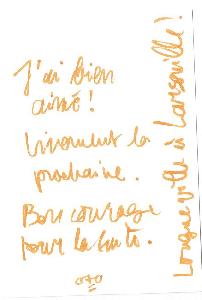 J'ai bien
aimé !
Vivement la
prochaine.
Bon courage
pour la suite.
Longue vie à Larsenville !